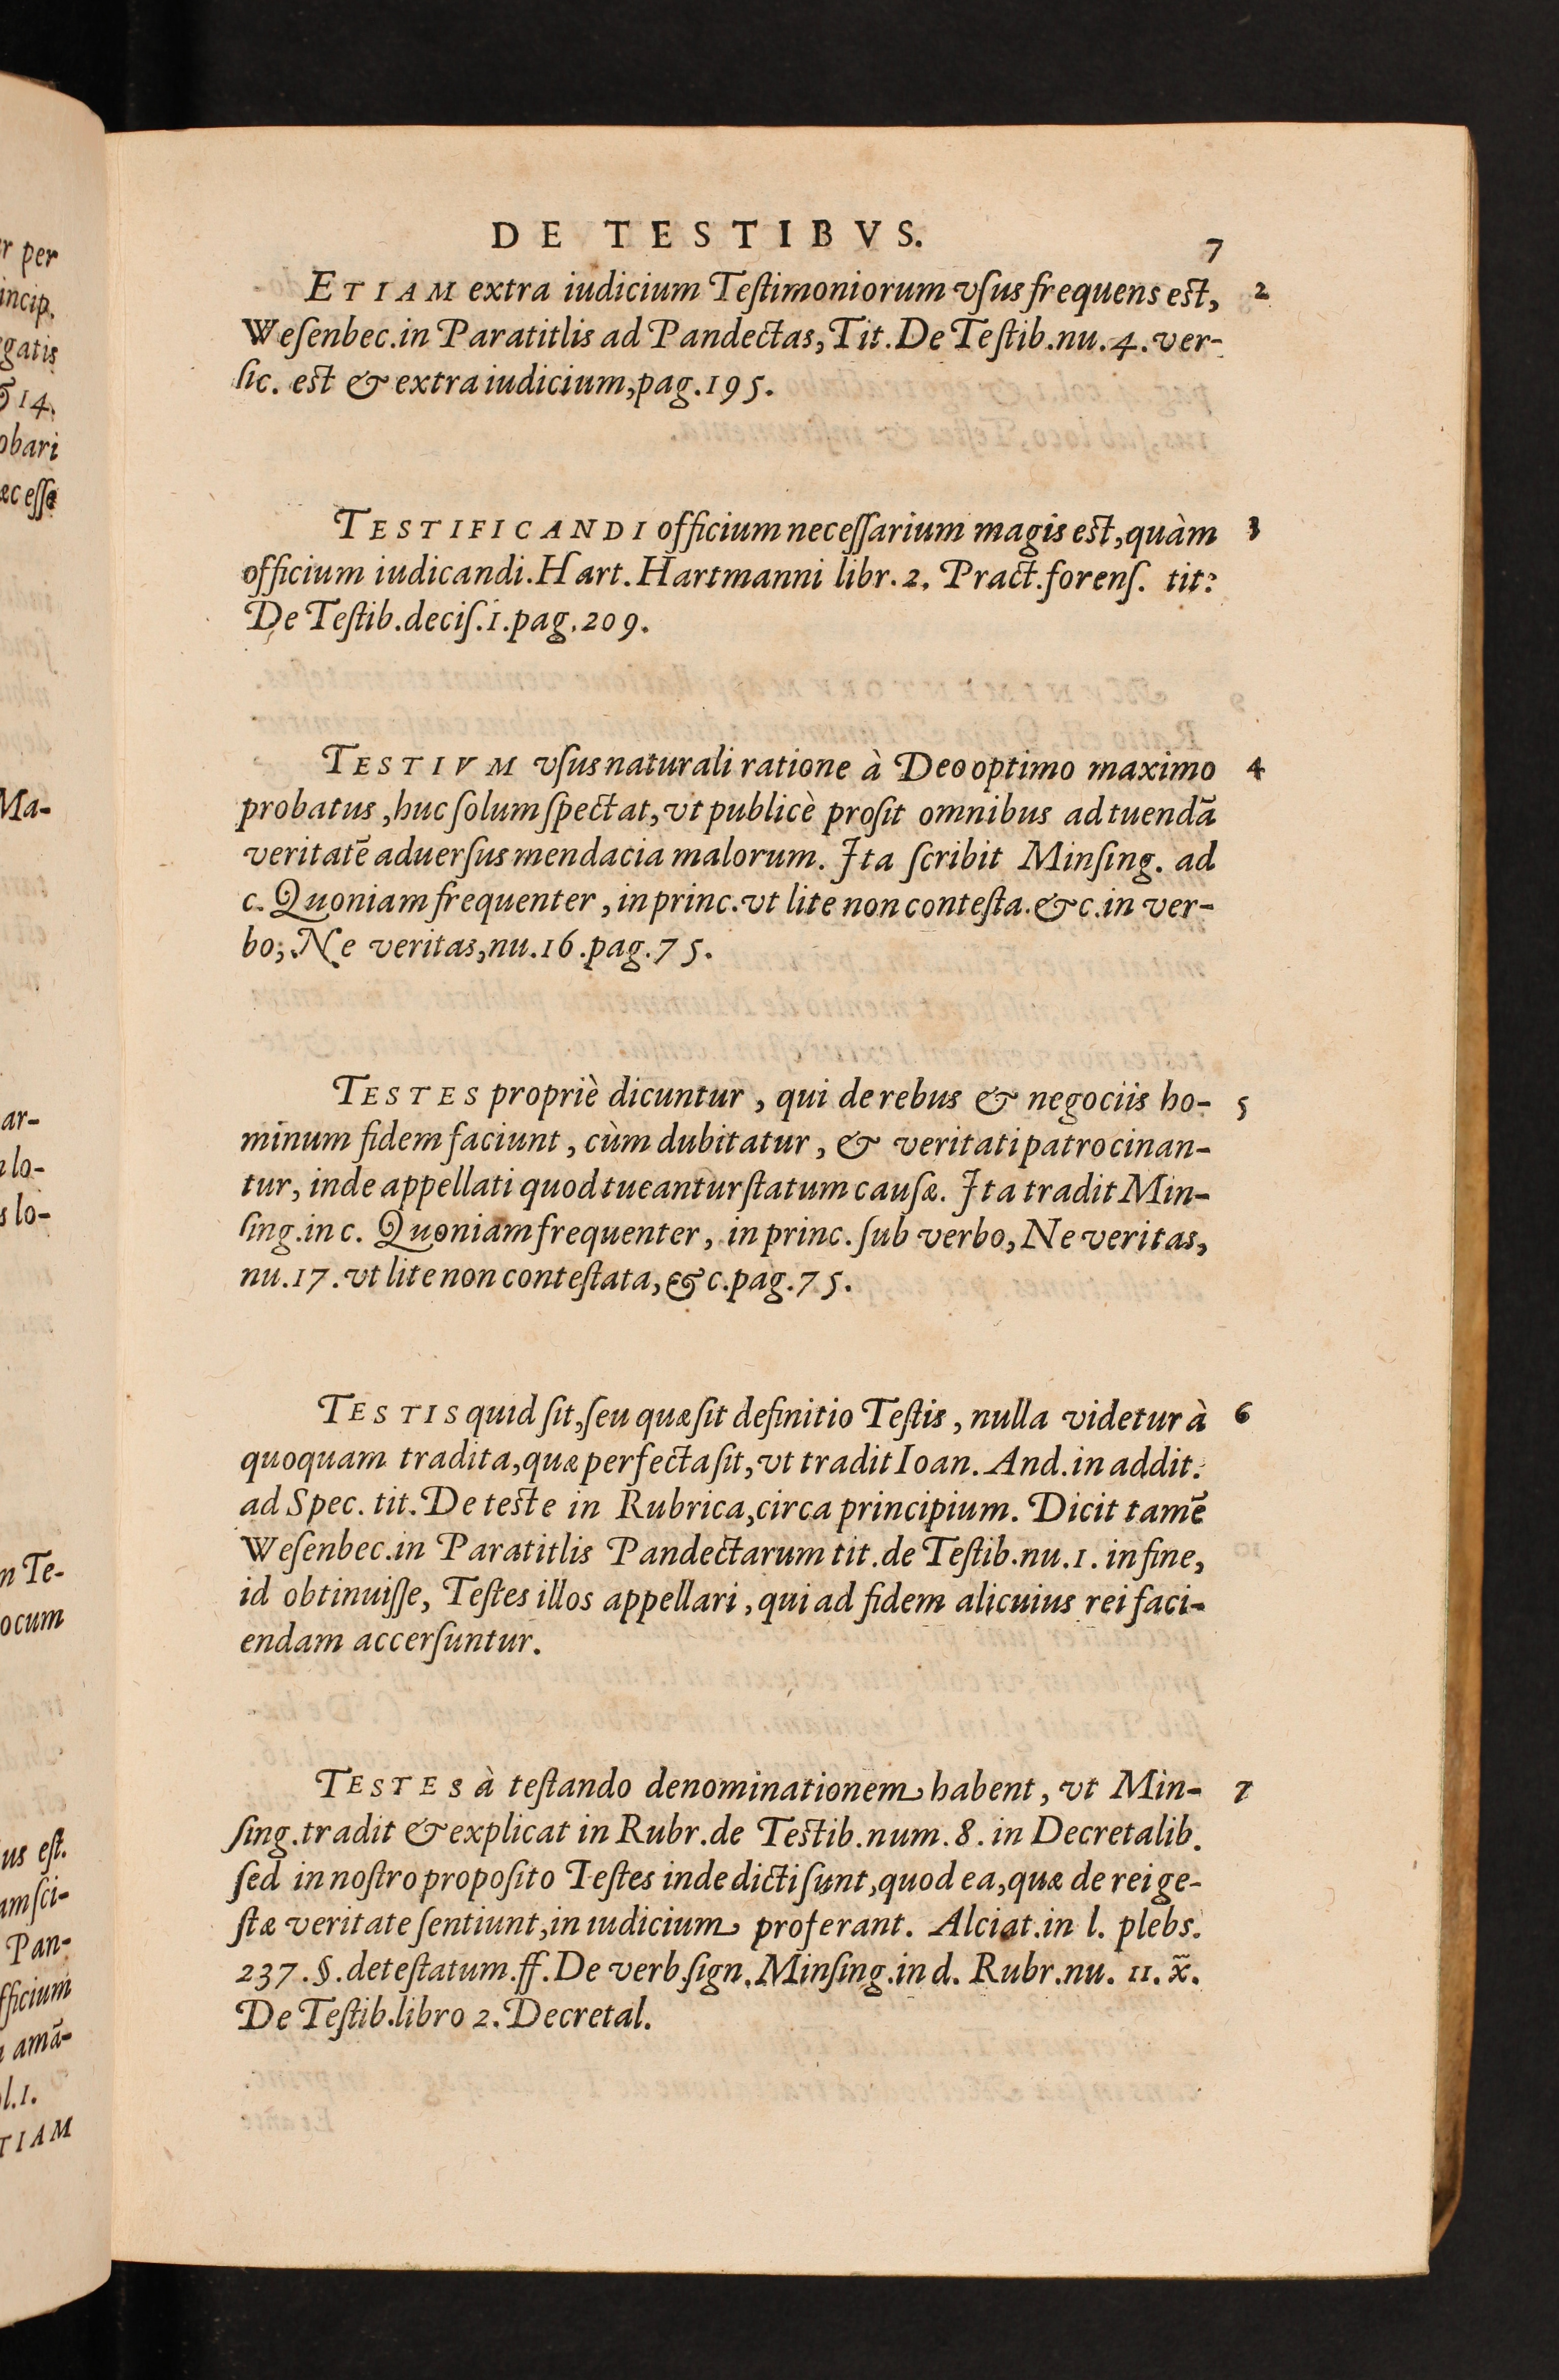 DE TESTIBVS.
7
ETIAM extra iudicium Teſtimoniorum vſus frequens eſt, 2
Weſenbec.in Paratitlis ad Pandectas, Tit. De Teſtib.nu.4.ver-
ſic. eſt & extra iudicium, pag.195.
TESTIFICANDI officium neceſſarium magis eſt, quàm 3
officium iudicandi. Hart. Hartmanni libr.2. Pract.forenſ. tit:
De Teſtib.deciſ.1.pag.209.
TESTIVM vſus naturali ratione à Deo optimo maximo 4
probatus, huc ſolum ſpectat, vt publicè proſit omnibus ad tuendā
veritatē aduerſus mendacia malorum. Ita ſcribit Minſing. ad
c. Quoniam frequenter, in princ.vt lite non conteſta.&c.in ver-
bo, Ne veritas, nu.16.pag.75.
TESTES propriè dicuntur, qui de rebus & negociis ho- 5
minum fidem faciunt, cùm dubitatur, & veritati patrocinan-
tur, inde appellati quod tueantur ſtatum cauſæ. Ita tradit Min-
ſing.in c. Quoniam frequenter, in princ. ſub verbo, Ne veritas,
nu.17.vt lite non conteſtata, &c.pag.75.
TESTIS quid ſit, ſeu quæ ſit definitio Teſtis, nulla videtur à 6
quoquam tradita, quæ perfecta ſit, vt tradit Ioan. And. in addit.
ad Spec. tit. De teſte in Rubrica, circa principium. Dicit tamē
Weſenbec.in Paratitlis Pandectarum tit.de Teſtib.nu.1. in fine,
id obtinuiſſe, Teſtes illos appellari, qui ad fidem alicuius rei faci-
endam accerſuntur.
TESTES à teſtando denominationem habent, vt Min- 7
ſing.tradit & explicat in Rubr.de Teſtib.num.8. in Decretalib.
ſed in noſtro propoſito Teſtes inde dicti ſunt, quod ea, quæ de rei ge-
ſtæ veritate ſentiunt, in iudicium proferant. Alciat.in l. plebs.
237.§.deteſtatum.ff.De verb.ſign. Minſing.in d. Rubr.nu. 11. x̄.
De Teſtib.libro 2. Decretal.